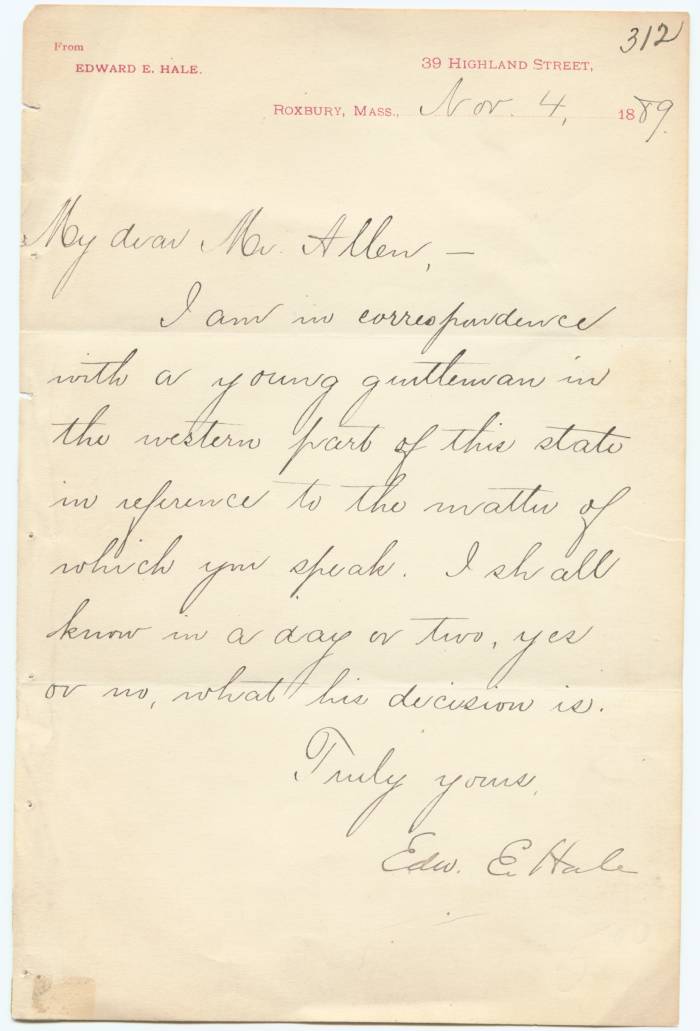 312
From
EDWARD E. HALE.
39 HIGHLAND STREET,
ROXBURY, MASS., Nov. 4, 1889.
My dear Mr. Allen, —
I am in correspondence
with a young gentleman in
the western part of this state
in reference to the matter of
which you speak. I shall
know in a day or two, yes
or no, what his decision is.
Truly yours,
Edw. E. Hale